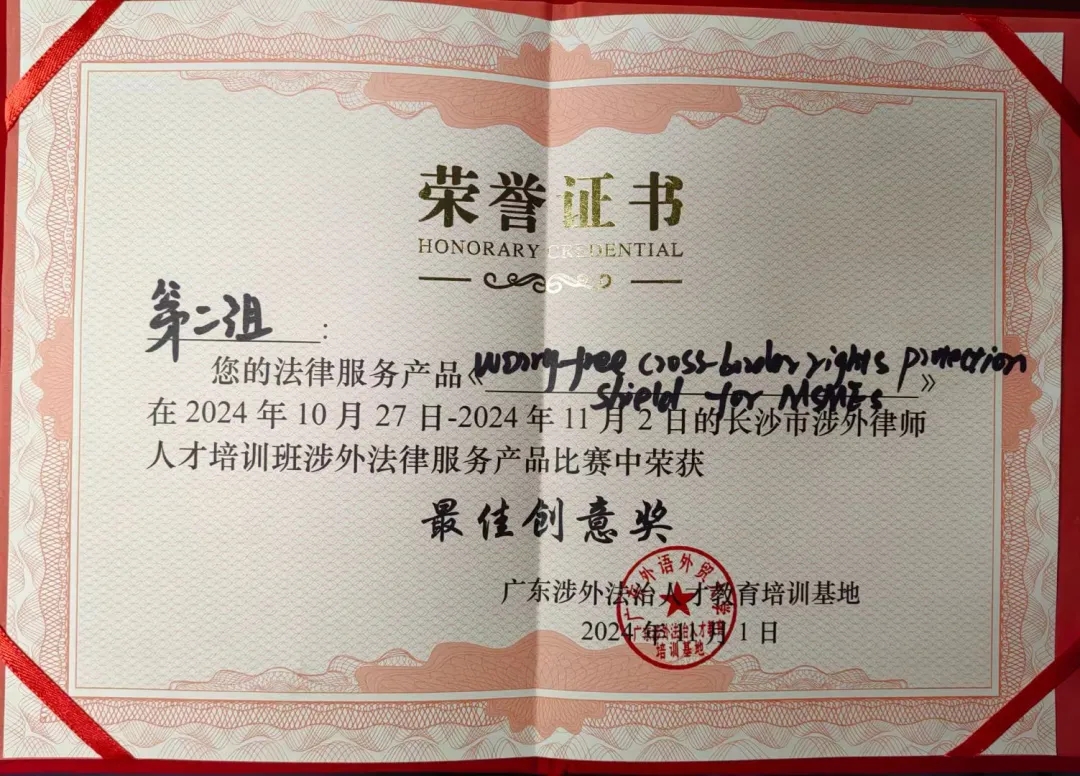 荣誉证书
HONORARY CREDENTIAL
第二组：
您的法律服务产品《worry-free cross-border rights protection
shield for MSMEs》
在 2024 年 10 月 27 日-2024 年 11 月 2 日的长沙市涉外律师
人才培训班涉外法律服务产品比赛中荣获
最佳创意奖
广东涉外法治人才教育培训基地
2024 年 11 月 1 日
广东外语外贸大学
广东涉外法治人才教育
培训基地